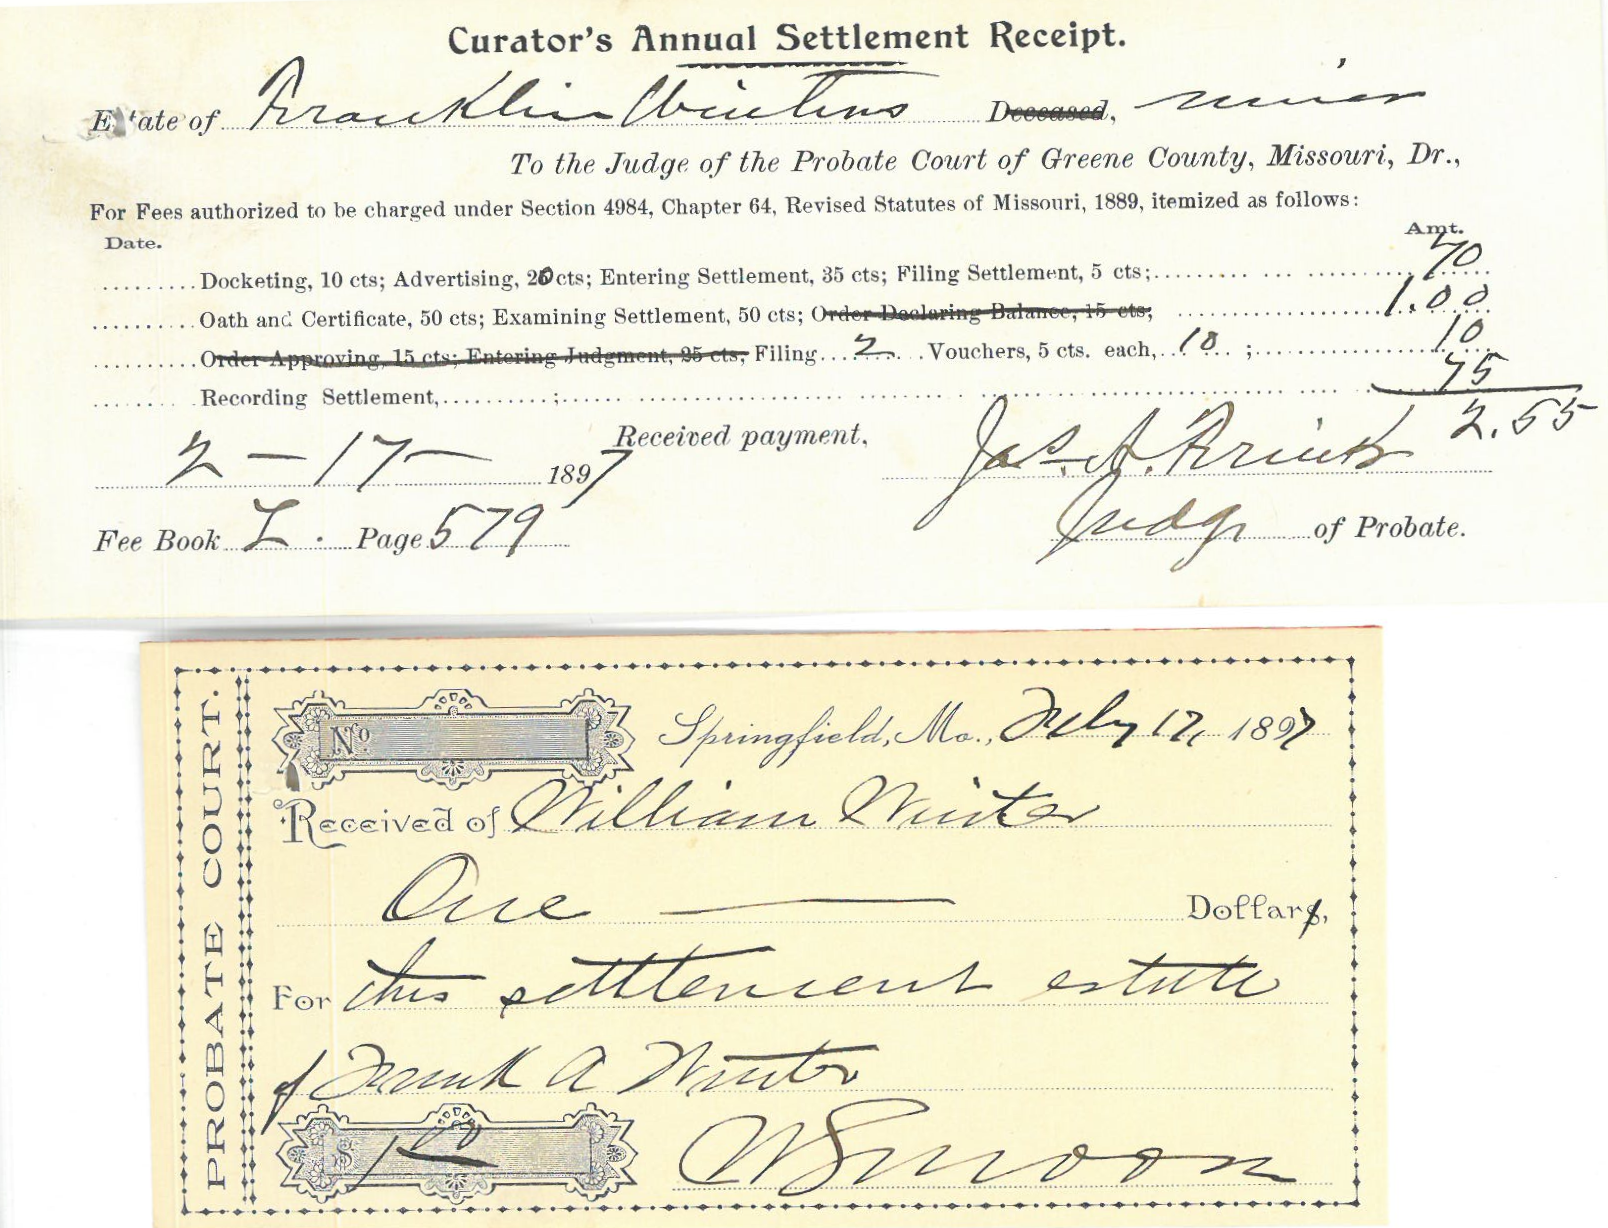 Curator's Annual Settlement Receipt.
Estate of Franklin Winters Deceased, minor
To the Judge of the Probate Court of Greene County, Missouri, Dr.,
For Fees authorized to be charged under Section 4984, Chapter 64, Revised Statutes of Missouri, 1889, itemized as follows:
Date. Amt.
Docketing, 10 cts; Advertising, 20 cts; Entering Settlement, 35 cts; Filing Settlement, 5 cts; 70
Oath and Certificate, 50 cts; Examining Settlement, 50 cts; Order Declaring Balance, 15 cts; 1.00
Order Approving, 15 cts; Entering Judgment, 25 cts; Filing 2 Vouchers, 5 cts. each, 10 ; 10
Recording Settlement, ; 75
2.55
2 - 17 - 1897 Received payment, Jas. A. Frink
Fee Book L. Page 579 Judge of Probate.
PROBATE COURT.
No. Springfield, Mo., Feby 17, 1897
Received of William Winter
One Dollars,
For this settlement estate
of Frank A Winter
$ 1 00 W S Moon